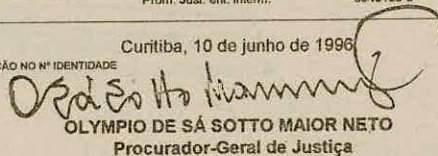 Prom. Just. ent. interm.
Curitiba, 10 de junho de 1996
ÇÃO NO Nº IDENTIDADE
OLYMPIO DE SÁ SOTTO MAIOR NETO
Procurador-Geral de Justiça